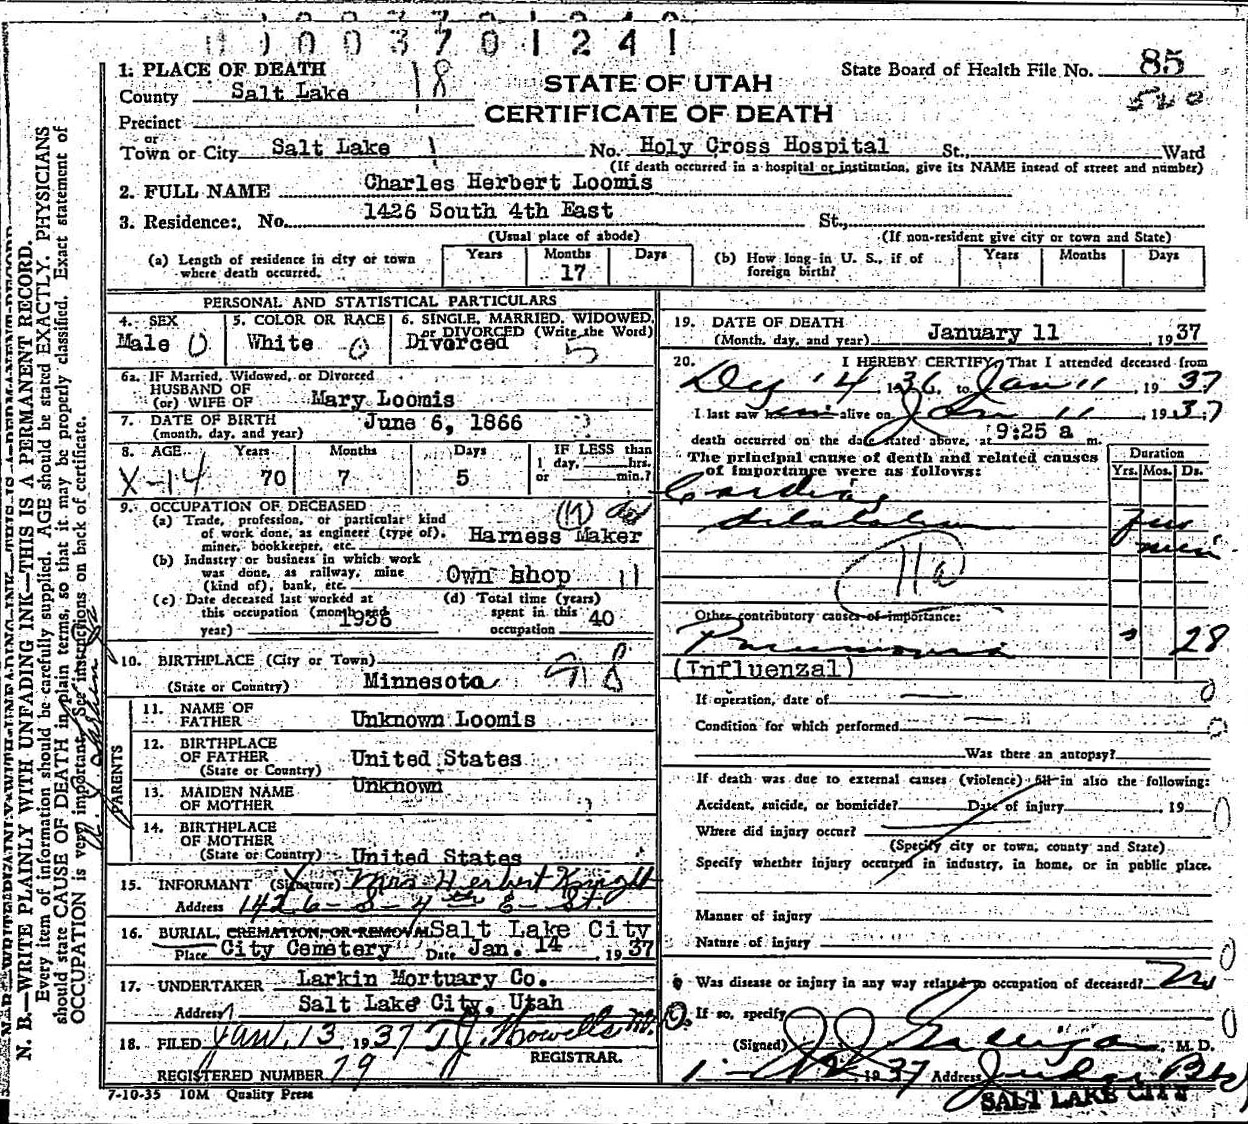 0003701241
1. PLACE OF DEATH 18
STATE OF UTAH
State Board of Health File No. 85
County Salt Lake
CERTIFICATE OF DEATH
520
Precinct
or
Town or City Salt Lake No. Holy Cross Hospital St., Ward
(If death occurred in a hospital or institution, give its NAME instead of street and number)
2. FULL NAME Charles Herbert Loomis
3. Residence: No. 1426 South 4th East St.,
(Usual place of abode) (If non-resident give city or town and State)
(a) Length of residence in city or town where death occurred. Years Months 17 Days
(b) How long in U. S., if of foreign birth? Years Months Days
PERSONAL AND STATISTICAL PARTICULARS
4. SEX Male 0
5. COLOR OR RACE White 0
6. SINGLE, MARRIED, WIDOWED, or DIVORCED (Write the Word) Divorced 5
6a. IF Married, Widowed, or Divorced
HUSBAND OF
(or) WIFE OF Mary Loomis
7. DATE OF BIRTH
(month, day, and year) June 6, 1866
8. AGE Years Months Days IF LESS than
X-14 70 7 5 1 day, hrs. or min.?
9. OCCUPATION OF DECEASED
(a) Trade, profession, or particular kind
of work done, as engineer (type of),
miner, bookkeeper, etc. Harness Maker
(b) Industry or business in which work
was done, as railway, mine
(kind of), bank, etc. Own shop 11
(c) Date deceased last worked at
this occupation (month and
year) 1936
(d) Total time (years)
spent in this
occupation 40
10. BIRTHPLACE (City or Town)
(State or Country) Minnesota 918
PARENTS
11. NAME OF
FATHER Unknown Loomis
12. BIRTHPLACE
OF FATHER
(State or Country) United States
13. MAIDEN NAME
OF MOTHER Unknown
14. BIRTHPLACE
OF MOTHER
(State or Country) United States
15. INFORMANT (Signature) Mrs Herbert Knight
Address 1426 - S - 4th E - St.
16. BURIAL, CREMATION, OR REMOVAL Salt Lake City
Place City Cemetery Date Jan. 14, 1937
17. UNDERTAKER Larkin Mortuary Co.
Address Salt Lake City, Utah
18. FILED Jan. 13, 1937 T J. Howells
REGISTRAR.
REGISTERED NUMBER 79
7-10-35 10M Quality Press
19. DATE OF DEATH
(Month, day, and year) January 11 1937
20. I HEREBY CERTIFY, That I attended deceased from
14 1936, to Jan 11, 1937
I last saw him alive on Jan 11, 1937
death occurred on the date stated above, at 9:25 a m.
The principal cause of death and related causes
of importance were as follows:
Duration
Yrs. Mos. Ds.
Cardiac
dilatation few min
11a
Other contributory causes of importance:
Pneumonia 28
(Influenzal)
If operation, date of
Condition for which performed
Was there an autopsy?
If death was due to external causes (violence) fill in also the following:
Accident, suicide, or homicide? Date of injury , 19
Where did injury occur?
(Specify city or town, county and State)
Specify whether injury occurred in industry, in home, or in public place.
Manner of injury
Nature of injury
Was disease or injury in any way related to occupation of deceased? No
If so, specify
(Signed) M. D.
1-12 1937 Address Judge Bldg
SALT LAKE CITY
N. B.—WRITE PLAINLY WITH UNFADING INK—THIS IS A PERMANENT RECORD.
Every item of information should be carefully supplied. AGE should be stated EXACTLY. PHYSICIANS
should state CAUSE OF DEATH in plain terms, so that it may be properly classified. Exact statement of
OCCUPATION is very important. See instructions on back of certificate.